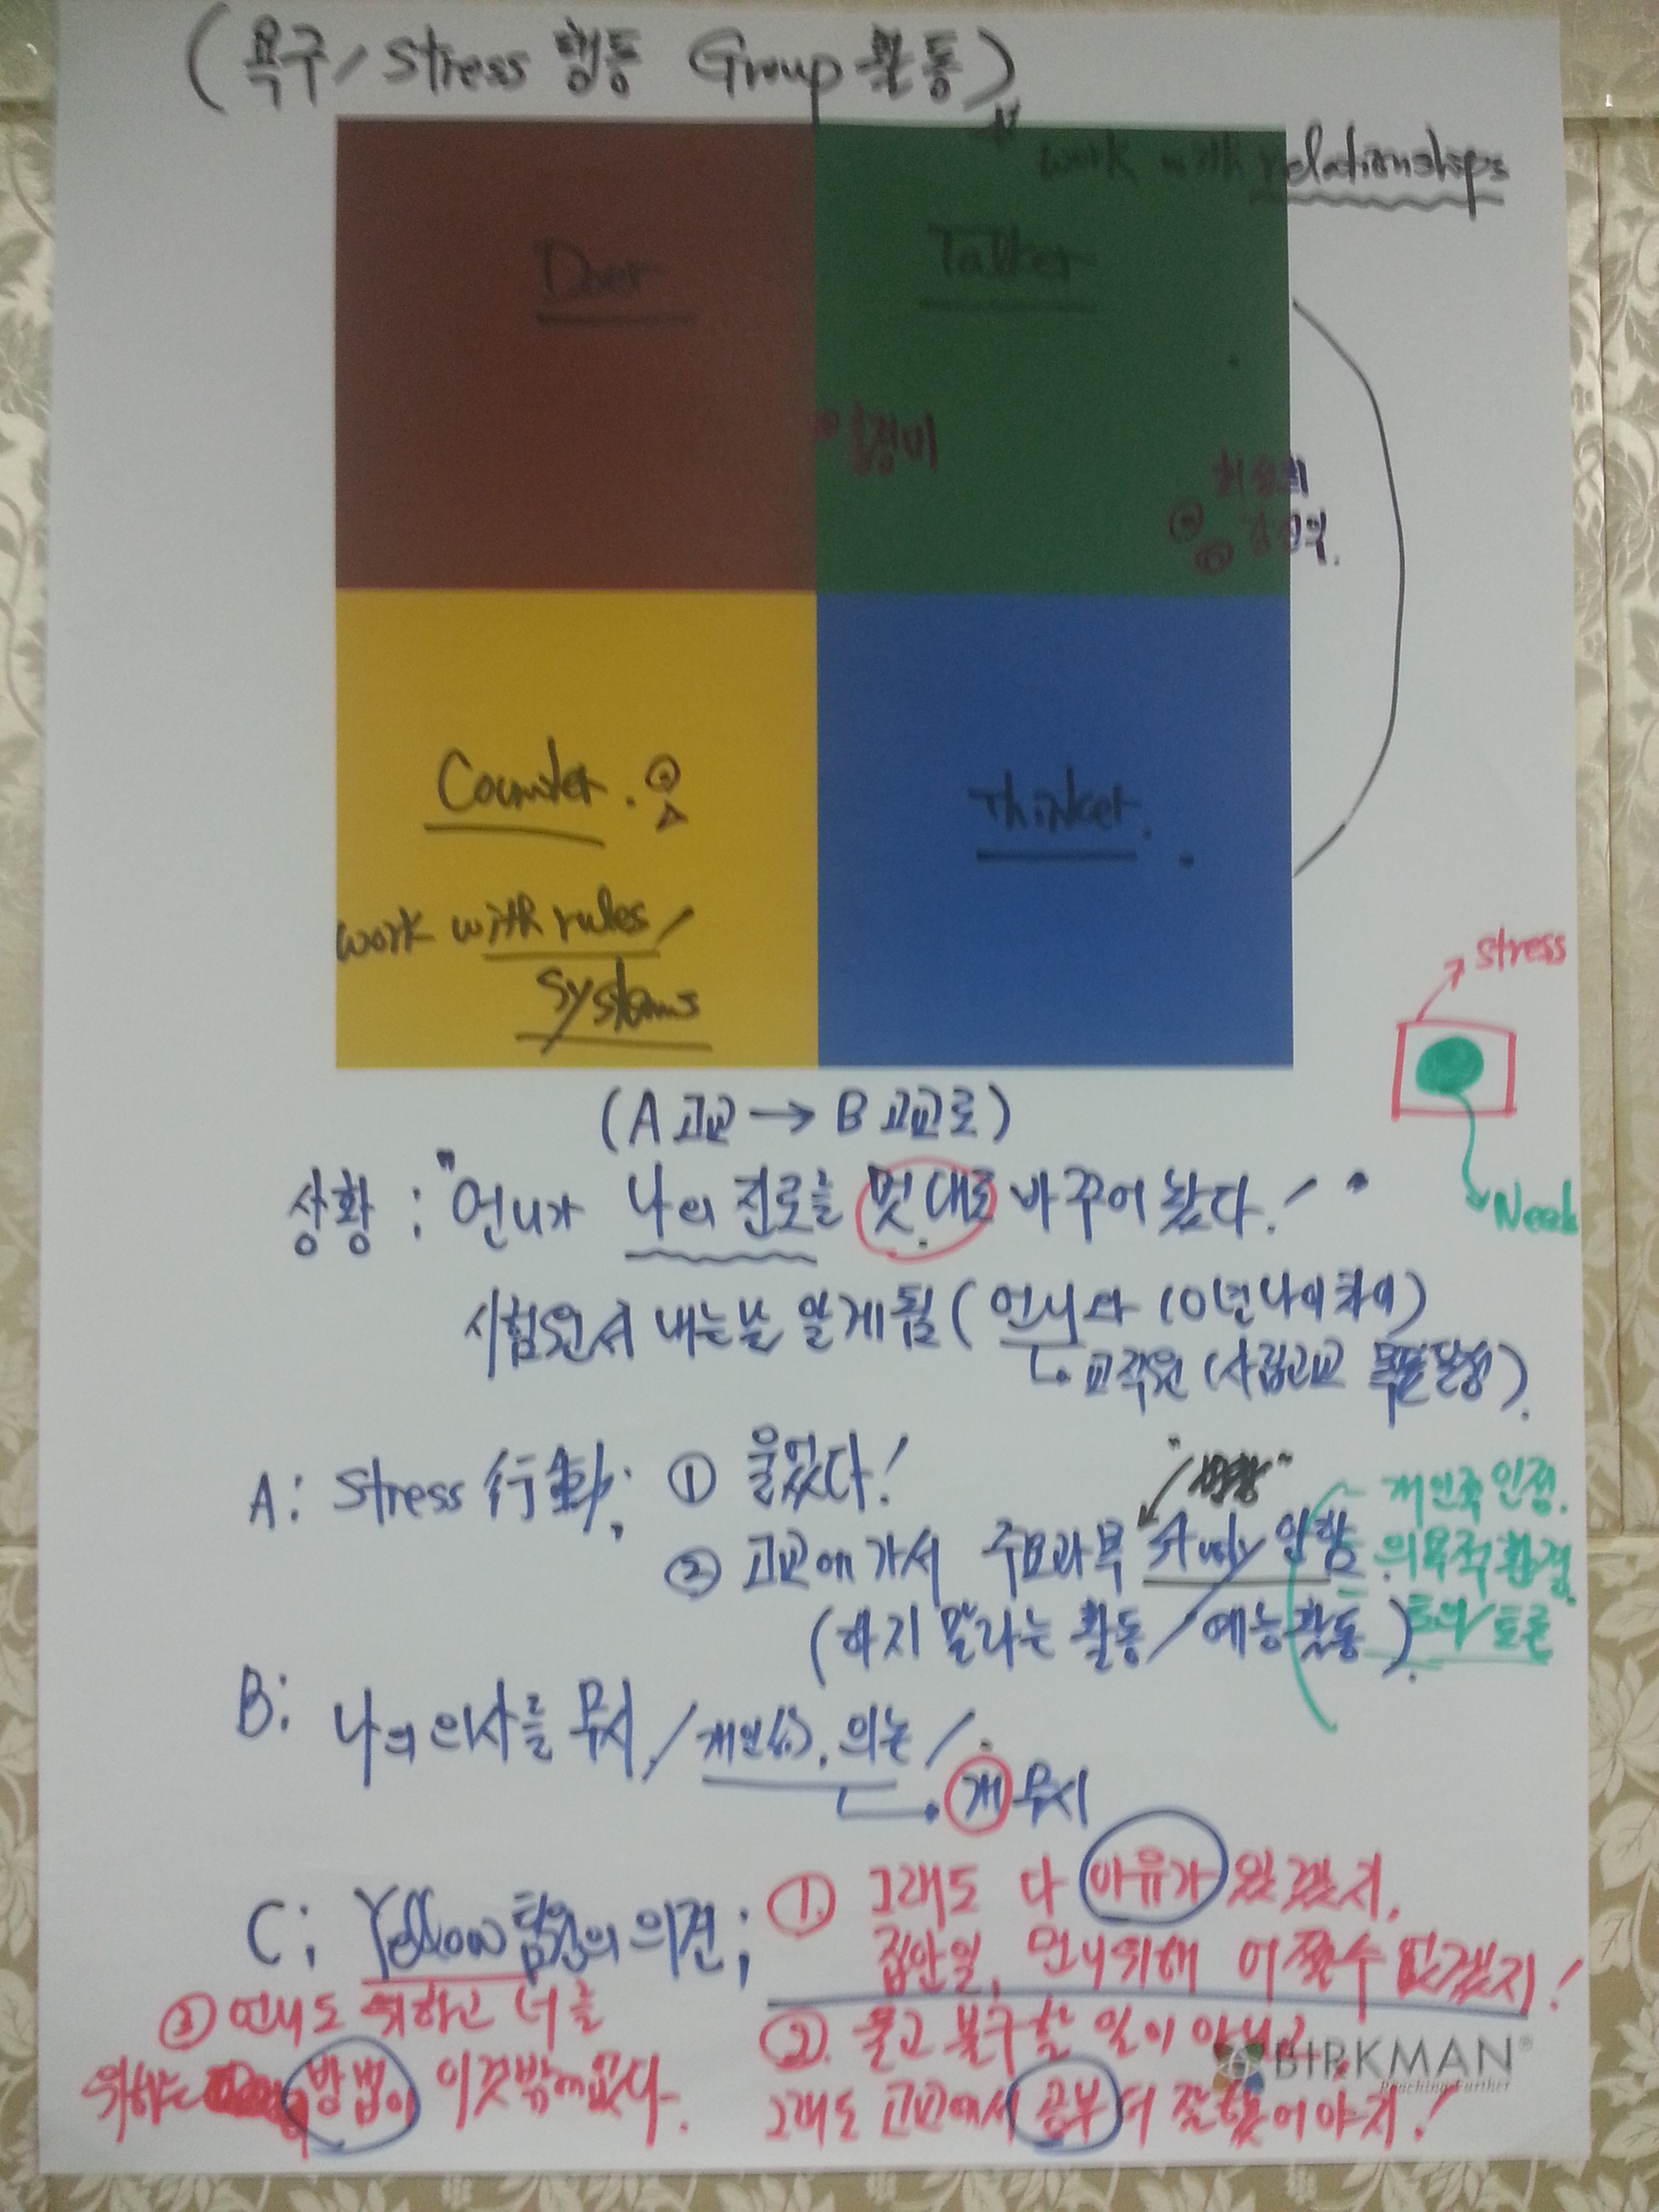 (욕구/stress 행동 Group활동)
work with relationships
Doer
Talker
홍정미
Counter.
Thinker.
work with rules/
systems
stress
Need
(A고교 → B고교로)
상황 : "언니가 나의 진로를 멋대로 바꾸어 놨다!"
시험원서 내는날 알게됨 (언니와 10년 나이차이)
교직원 (사립고교 목표달성).
A: Stress 行動; ① 울었다!
② 고교에 가서 주요과목 study 안함
(하지 말라는 활동/예능활동).
개인적 인정.
의무적 환경.
토의/토론
B: 나의 의사를 무시/개인 의논/
개무시
C; Yellow 팀원의 의견;
① 그래도 다 이유가 있겠지,
집안일, 언니위해 어쩔수 없겠지!
② 울고 불구할 일이 아니고,
그래도 고교에서 공부 더 잘했어야지!
③ 언니도 위하고 너를
위하는 방법이 이것밖에 없다.
BIRKMAN®
Reaching Further